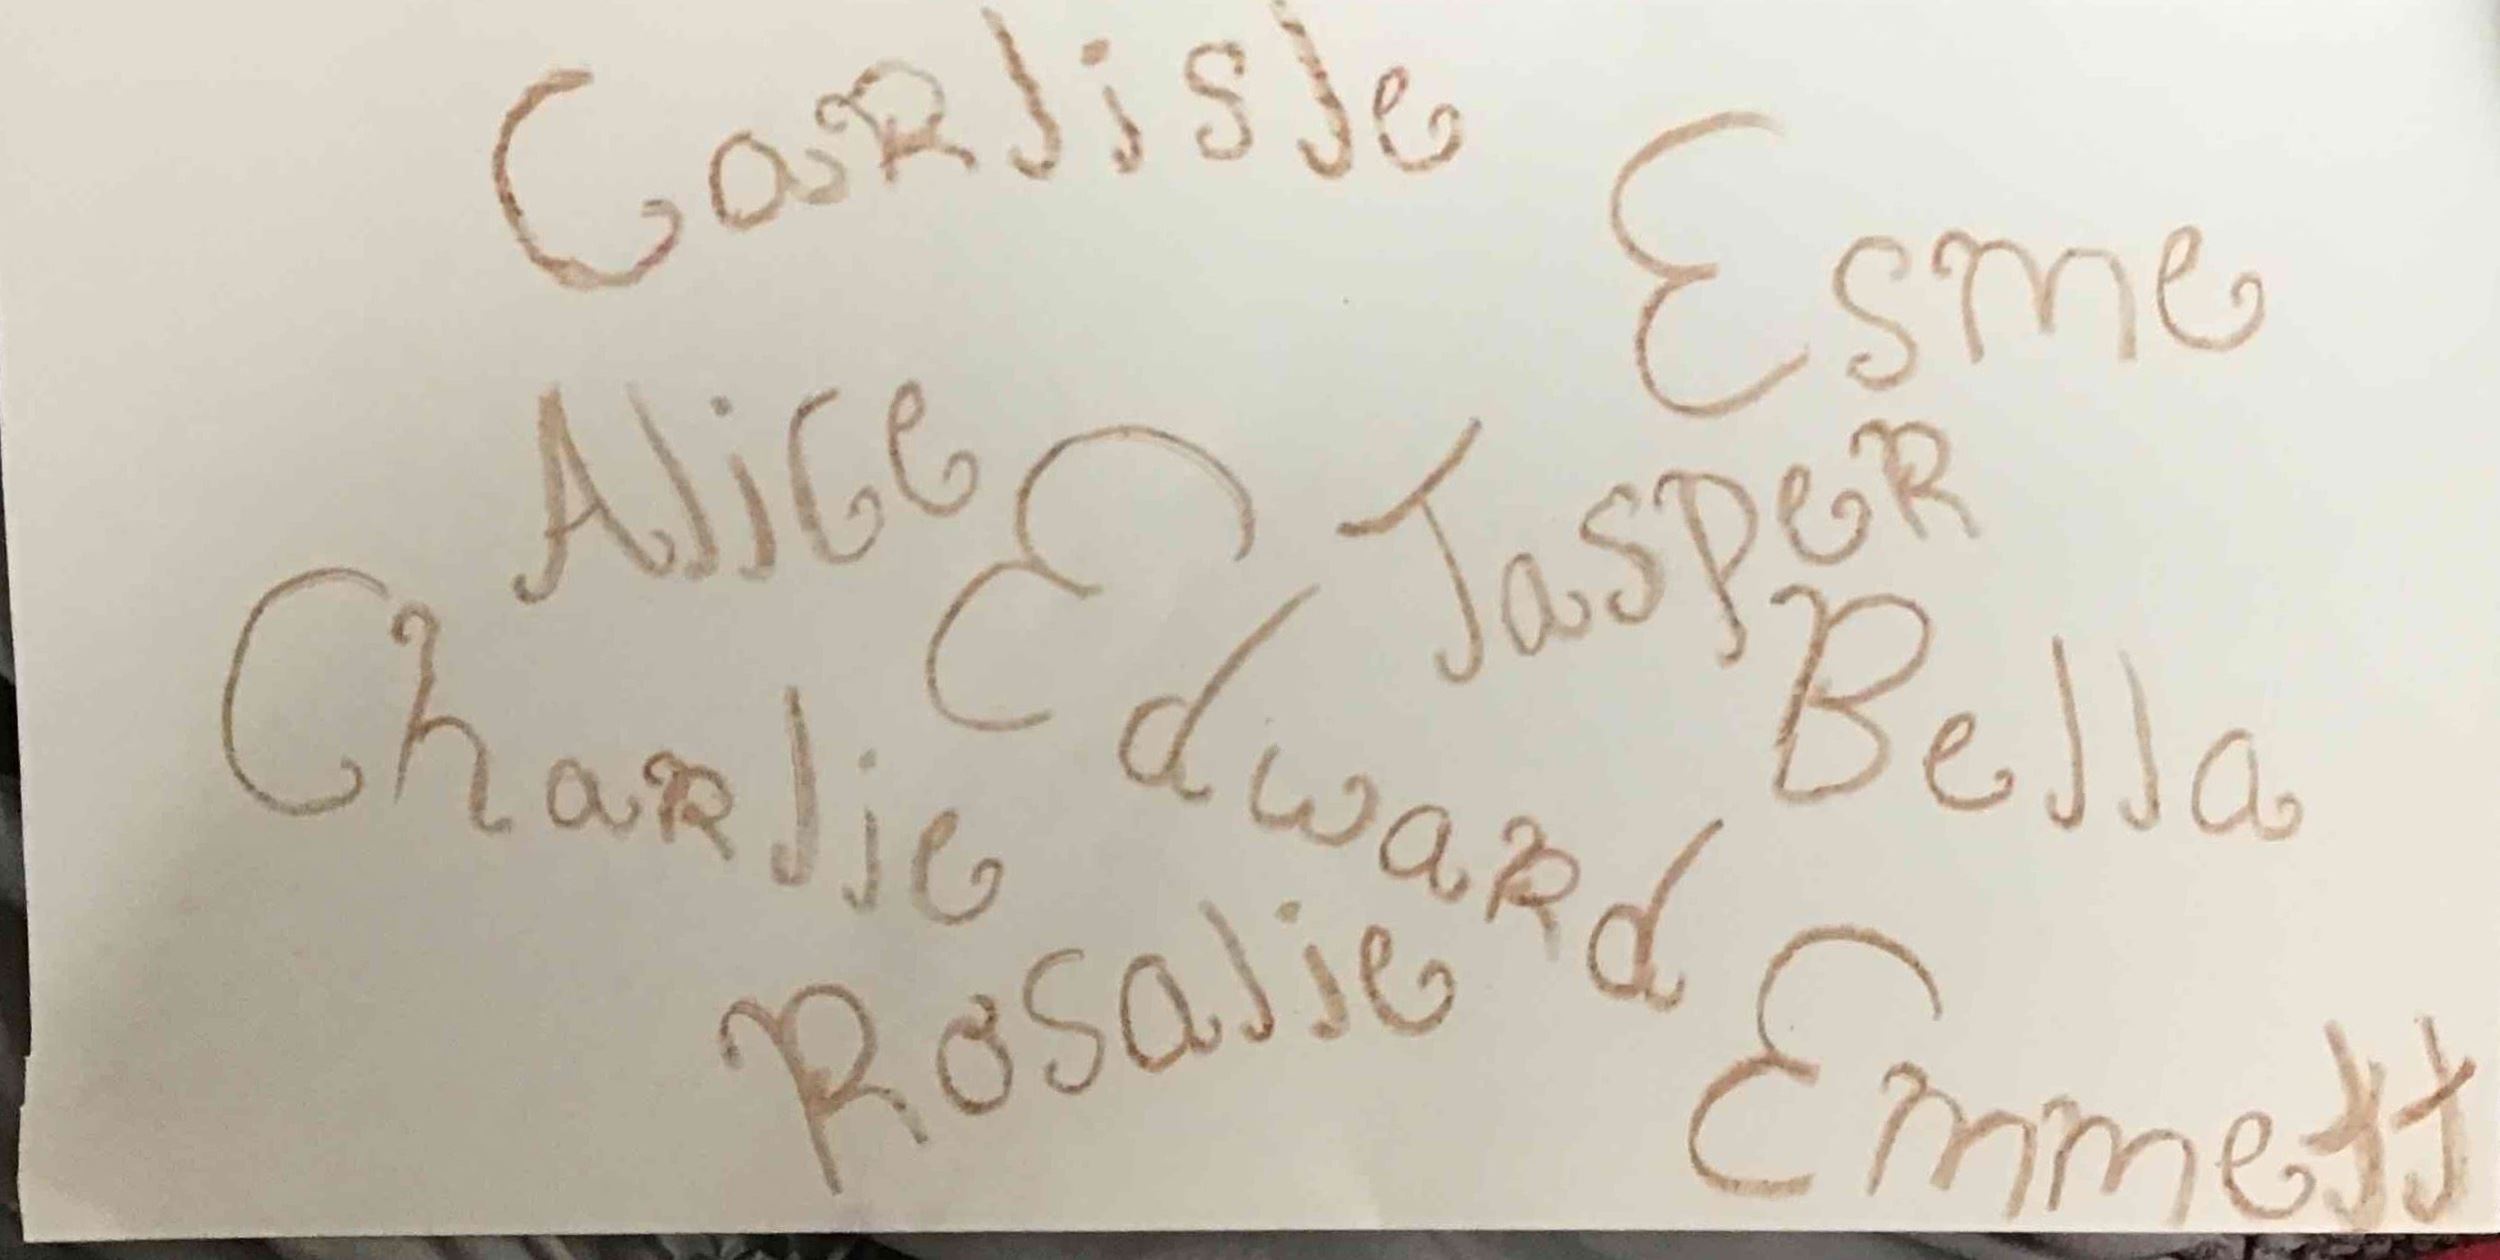 Carlisle
Esme
Alice
Jasper
Edward
Charlie
Bella
Rosalie
Emmett